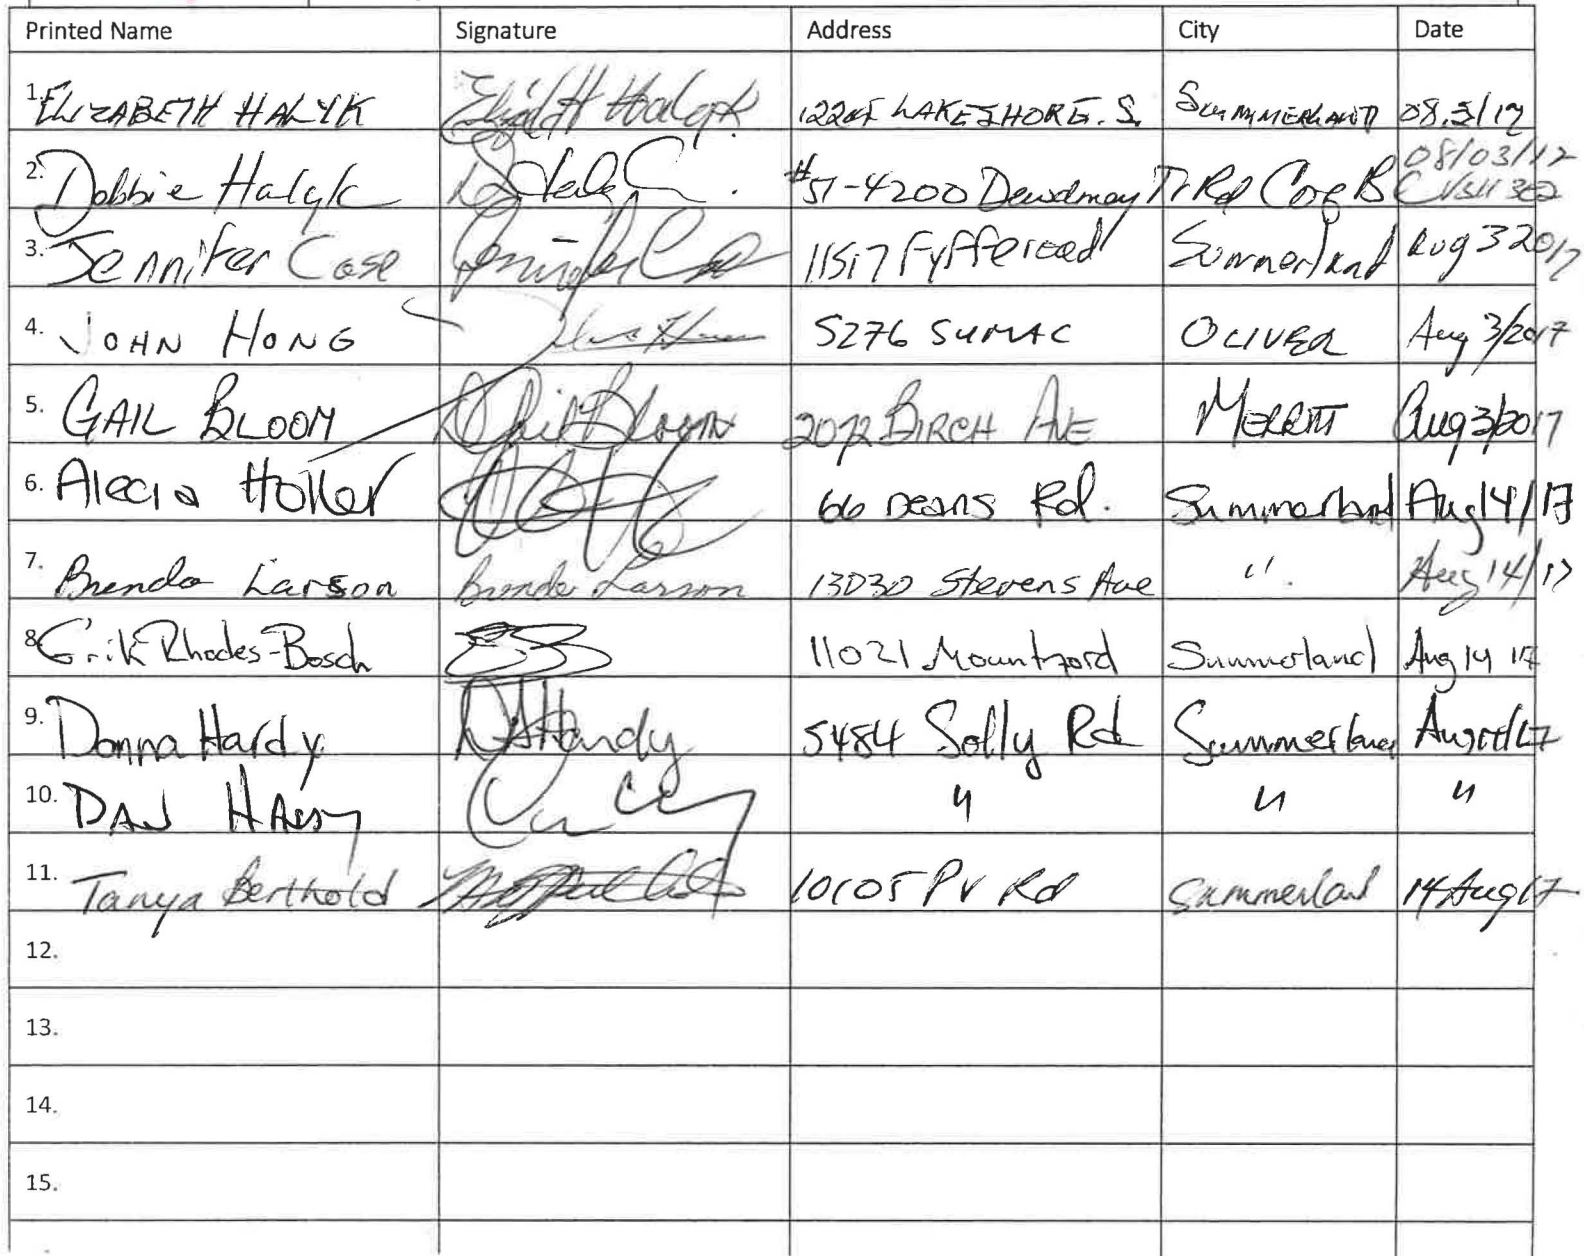 Printed Name Signature Address City Date
1. ELIZABETH HALYK LAKESHORE. S. SUMMERLAND
2. Debbie Halyk #51-4200 Dewdney Tr Rd 08/03/17
3. Jennifer Case Jennifer Case 11517 Fyffe road Summerland Aug 3 2017
4. JOHN HONG 5276 SUMAC OLIVER Aug 3/2017
5. GAIL BLOOM Gail Bloom 2072 BIRCH AVE MERRITT Aug 3/2017
6. Alecia Holler 66 Deans Rd. Summerland Aug 14/17
7. Brenda Larson Brenda Larson 13030 Stevens Ave " Aug 14/17
8. Erik Rhodes-Bosch 11021 Mountford Summerland Aug 14 17
9. Donna Hardy D Hardy 5484 Solly Rd Summerland Aug 14/17
10. DAN HARDY " " "
11. Tanya Berthold 10105 PV Rd Summerland 14 Aug 17
12.
13.
14.
15.